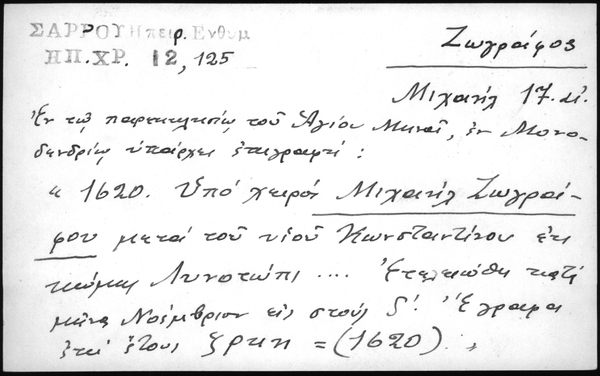 ΣΑΡΡΟΥ Ηπειρ. Ενθυμ
ΗΠ.ΧΡ. 12, 125
Ζωγράφος
Μιχαήλ 17. αἰ.
Ἐν τῷ παρεκκλησίῳ τοῦ Ἁγίου Μηνᾶ, ἐν Μονο-
δενδρίῳ ὑπάρχει ἐπιγραφή:
« 1620. Ὑπό χειρός Μιχαήλ Ζωγρά-
φου μετά τοῦ υἱοῦ Κωνσταντίνου ἐκ
κώμης Λυνοτώπι .... Ἐτελειώθη κατά
μῆνα Νοέμβριον εἰς στούς ς΄. Ἔγραψα
ἐπί ἔτους ζρκη = (1620) »